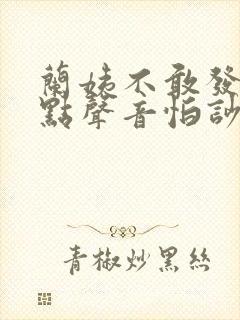 蘭姨不敢發
點聲音怕訬
青椒炒黑絲